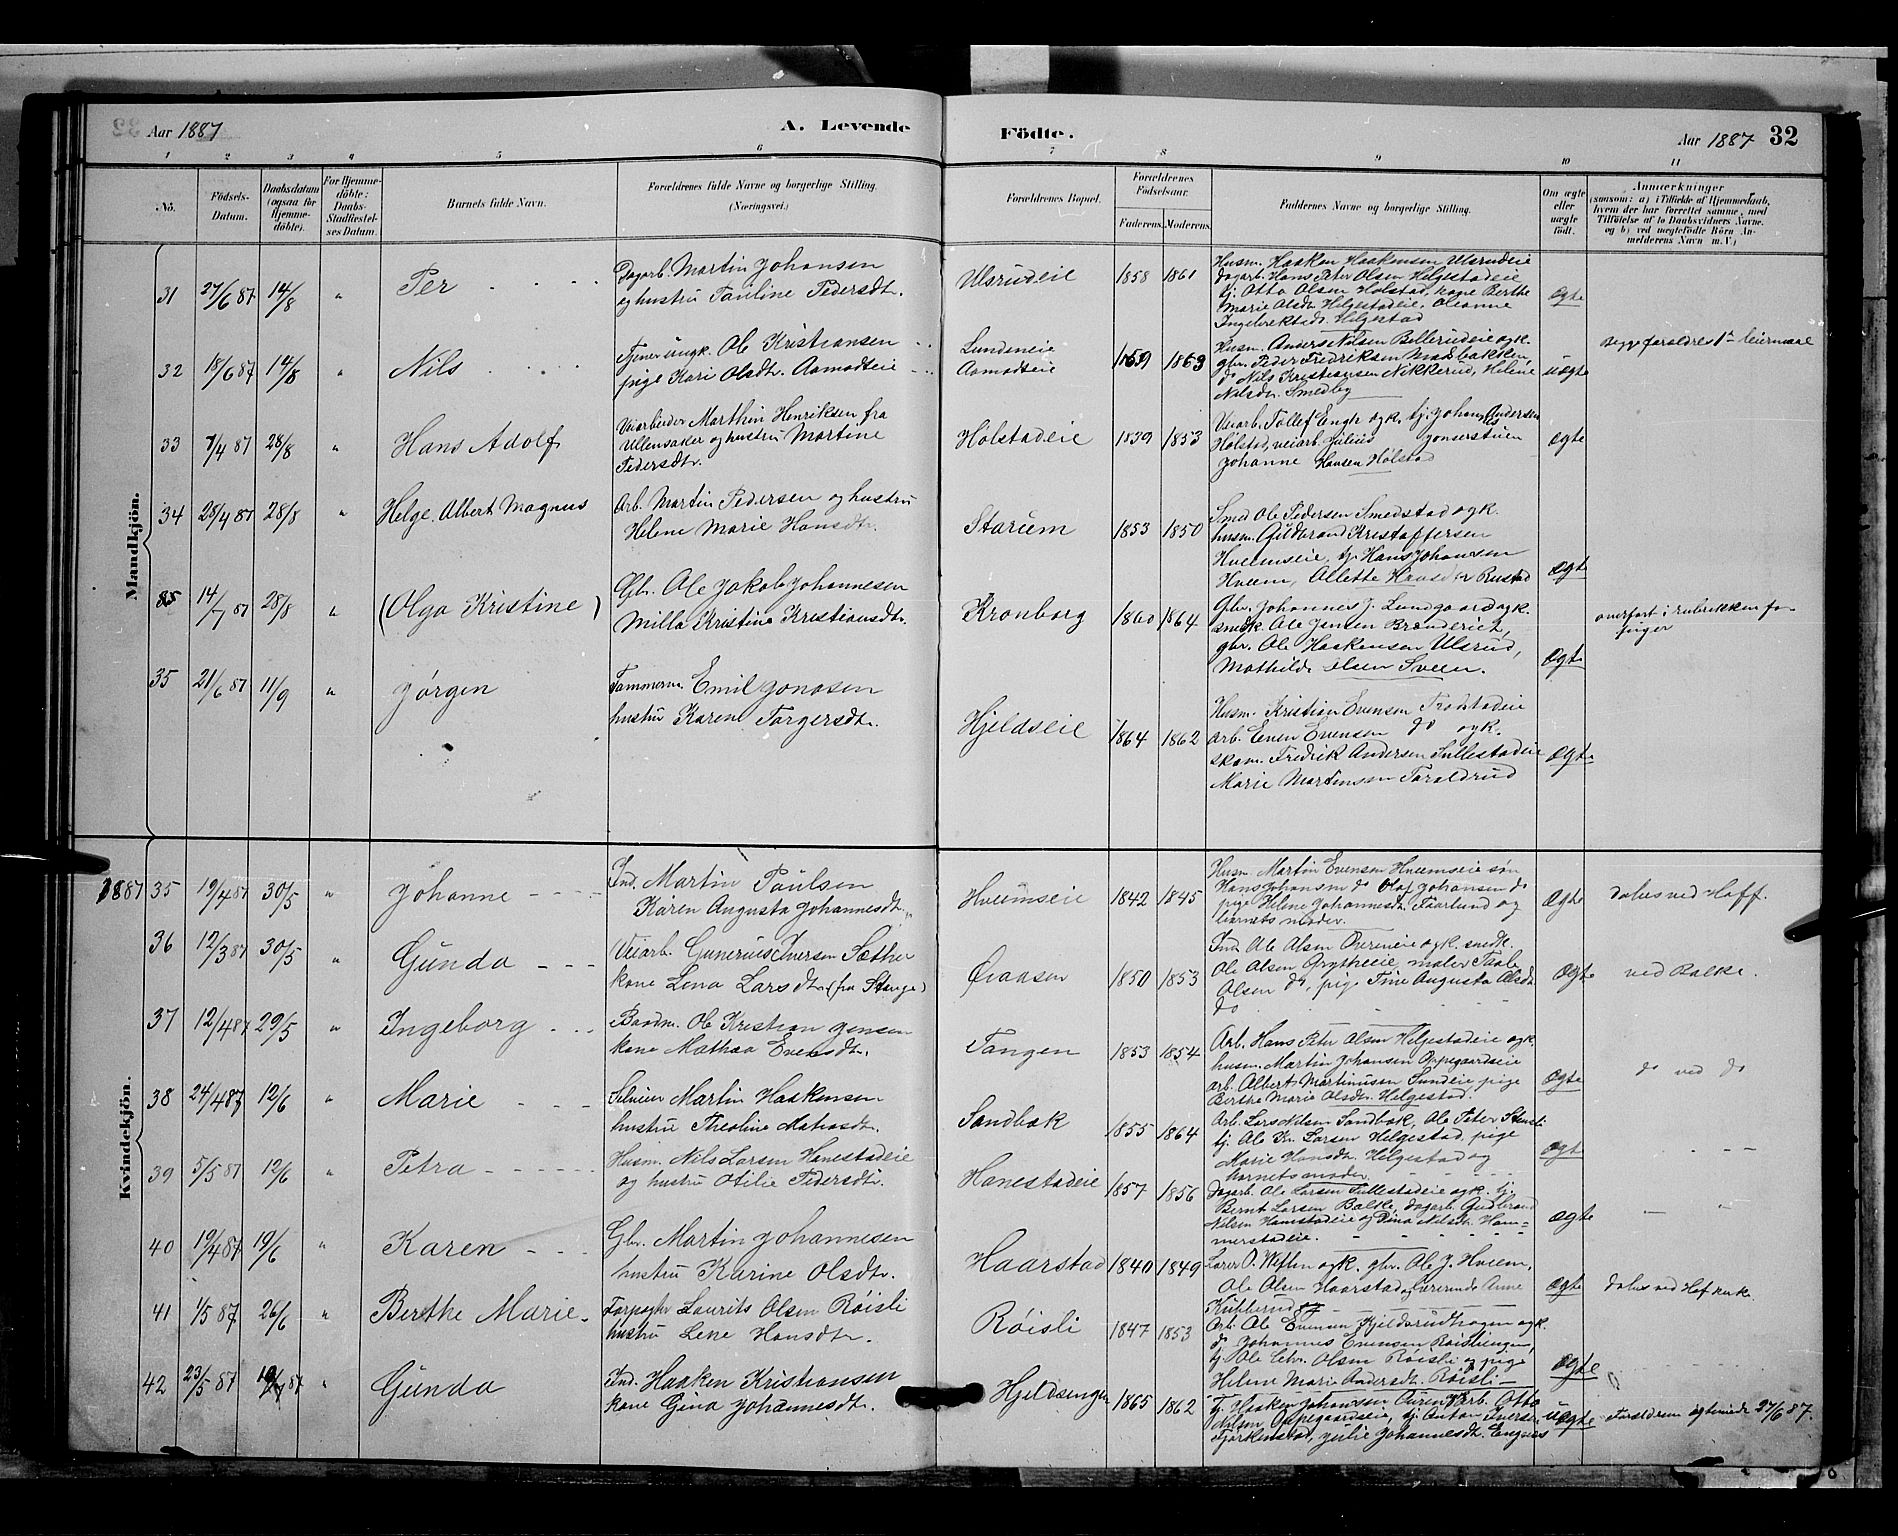 Aar 1887
A. Levende Födte.
Aar 1887 32
1 2 3 4 5 6 7 8 9 10 11
No. Födsels-Datum. Daabsdatum (ogsaa for Hjemmedöbte). For Hjemmedöbte: Daabs-Stadfæstelses Datum. Barnets fulde Navn. Forældrenes fulde Navne og borgerlige Stilling. (Næringsvei.) Forældrenes Bopæl. Forældrenes Födselsaar. Faderens. Moderens. Faddernes Navne og borgerlige Stilling. Om ægte eller uægte födt. Anmærkninger (saasom: a) i Tilfælde af Hjemmedaab, hvem der har forrettet samme, med Tilföielse af to Daabsvidners Navne. og b) ved uægtefödte Börn Anmelderens Navn m. V.)
Mandkjön.
31 27/6 87 14/8 " Per Dagarb. Martin Johansen
og hustru Pauline Pedersdtr. Ulsrudeie 1858 1861 Husm. Haaken Haakensen Ulsrudeie
dagarb. Hans Peter Olsen Helgestadeie
tj. Otto Olsen Holstad, kone Berthe
Marie Olsdtr. Helgestadeie, Oleanne
Helgestad Ægte
32 18/6 87 14/8 " Nils Tjener ungk. Ole Kristiansen
pige Kari Olsdtr. Aamodteie Lundseie
Aamodteie 1859 1863 Husm. Anders Nilsen Bellerudeie ogk.
gbr. Peder Fredriksen
do Nils Kristiansen Nikkerud, Helene
Nilsdtr. Smedby uægte begge foraldres 1ste leiermaal
33 7/4 87 28/8 " Hans Adolf Veiarbeider Marthin Henriksen fra
Ullensaker og hustru Martine
Pedersdtr. Holstadeie 1839 1853 Veiarb. Tollef Engh ogk. tj. Johan Andersen
Holstad, veiarb. Julius
Johanne Hansen Holstad Ægte
34 28/4 87 28/8 " Helge Albert Magnus Arb. Martin Pedersen og hustru
Helene Marie Hansdtr. Starum 1853 1850 Smed Ole Pedersen Smedstad ogk.
husm. Guldbrand Kristoffersen
Hveemseie, tj. Hans Johansen
Hveem, Allette Hansdtr Rustad Ægte
35 14/7 87 28/8 " (Olga Kristine) Gbr. Ole Jakob Johannesen
Milla Kristine Kristiansdtr. Kronborg 1860 1864 Gbr. Johannes J. Lundgaard ogk.
snedk. Ole Jensen
gbr. Ole Haakensen Ulsrud,
Mathilde Olsen Sveen. Ægte overfört i rubrikken for
piger
35 21/6 87 11/9 " Jörgen Tömmerm. Emil Jonasen
hustru Karen Torgersdtr. Hjeldseie 1864 1862 Husm. Kristian Evensen
arb. Even Evensen do ogk.
skom. Fredrik Andersen Sullestadeie
Marie Martinsen Taraldrud Ægte
Kvindekjön.
1887 35 19/4 87 30/5 " Johanne Ind. Martin Paulsen
Karen Augusta Johannesdtr. Hveemseie 1842 1845 Husm. Martin Evensen Hveemseie sön
Hans Johansen do Olaf Johansen do
pige Helene Johannesdtr. Faarlund og
barnets moder. Ægte Döbes ved Hoff.
36 12/3 87 30/5 " Gunda Veiarb. Gunerius Iversen Sæther
kone Lena Larsdtr. (fra Stange) Øraasen 1850 1853 Ind. Ole Olsen ogk. snedk.
Ole Olsen Grytheeie, maler
Olsen do, pige Tine Augusta Olsdtr.
do Ægte ved Balke.
37 12/4 87 29/5 " Ingeborg Baadm. Ole Kristian Jensen
kone Mathea Evensdtr. Tangen 1853 1854 Arb. Hans Peter Olsen Helgestadeie ogk.
husm. Martin Johansen Oppegaardseie
arb. Albert Martinusen Sundeie, pige
Berthe Marie Olsdtr. Helgestad. Ægte do ved do
38 24/4 87 12/6 " Marie Selveier Martin Haakensen
hustru Theoline Mathiasdtr. Sandbak 1855 1864 Arb. Lars Nilsen Sandbak, Ole Peter
tj. Ole Kr. Larsen Helgestad, pige
Marie Hansdtr. Helgestad og
barnets moder Ægte " - -
39 5/5 87 12/6 " Petra Husm. Nils Larsen Hanestadeie
og hustru Otilie Pedersdtr. Hanestadeie 1857 1856 Dagarb. Ole Larsen Sullestadeie ogk. tj.
Bernt Larsen Balke, dagarb. Gudbrand
Nilsen Hanestadeie og Dina Nilsdtr. Ham-
merstadeie. Ægte - "
40 19/4 87 19/6 " Karen Gbr. Martin Johannesen
hustru Karine Olsdtr. Haarstad 1840 1849 Lærer O. Weflen ogk. gbr. Ole J. Hveem,
Ole Olsen Haarstad og lærerinde Anne
Kubberud Ægte Döbes ved Hof kirke.
41 1/5 87 26/6 " Berthe Marie Forpagter Laurits Olsen Röisli
hustru Lene Hansdtr. Röisli 1847 1853 Arb. Ole Evensen Hjeldsrudhagen ogk.
do Johannes Evensen Röisliengen,
tj. Ole Chr. Olsen Röisli og pige
Helene Marie Andersdtr. Röisli Ægte
42 23/5 87 87 " Gunda Ind. Haaken Kristiansen
kone Gina Johannesdtr. Hjeldsengen 1865 1862 Tj. Haaken Johansen arb. Otto
Nilsen Oppegaardseie, tj. Anton Iversen
Julie Johannesdtr. Engnes uægte Forældrene ægteviede 27/6 87.